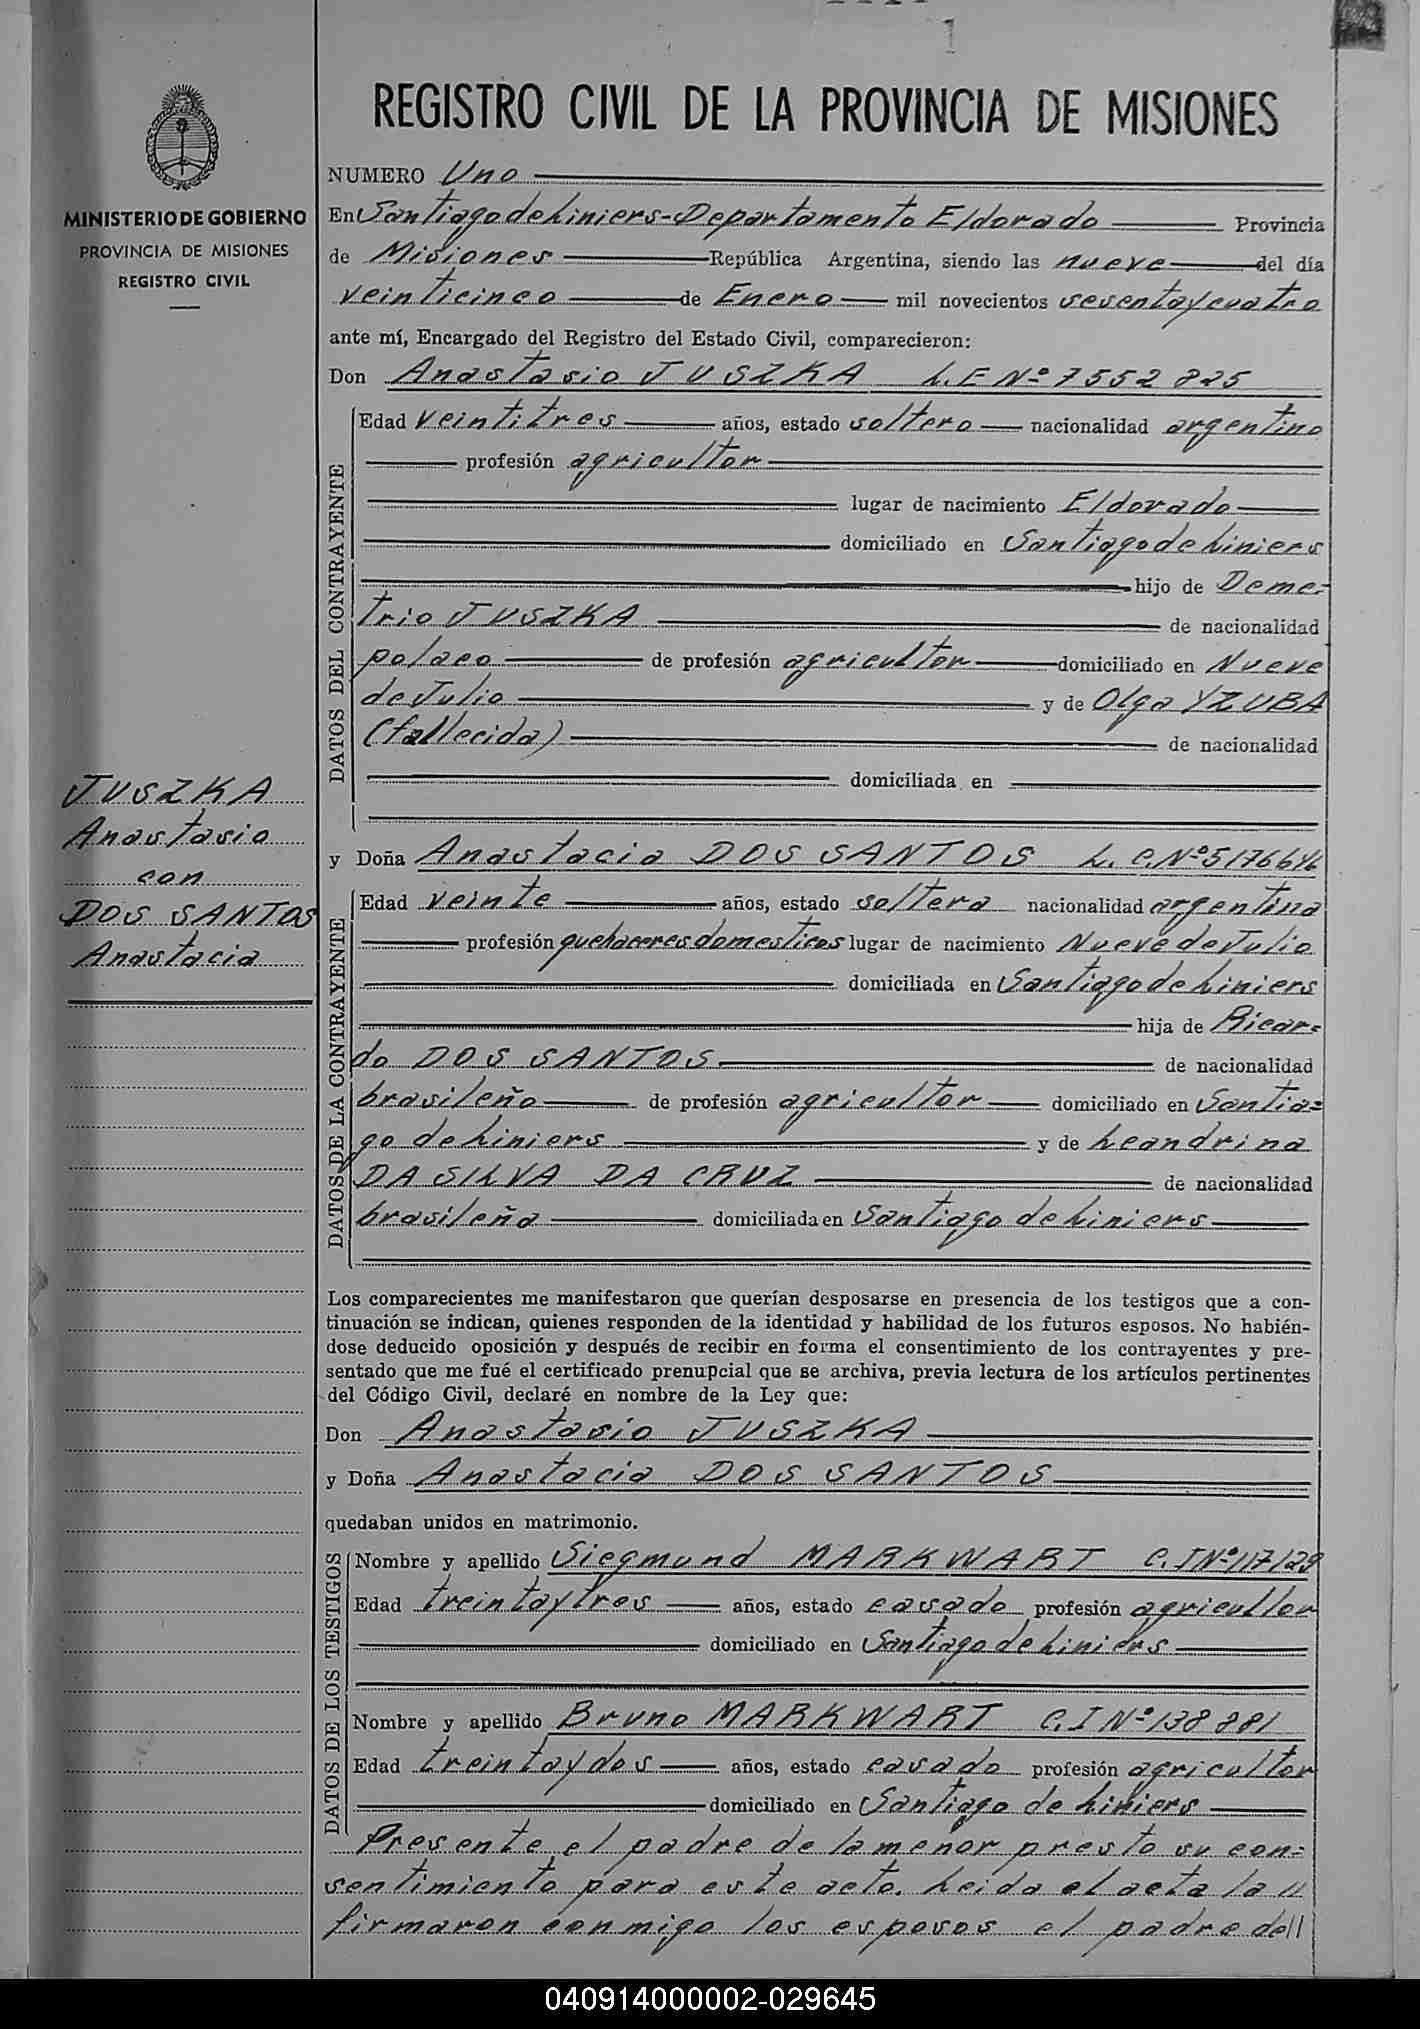 1
REGISTRO CIVIL DE LA PROVINCIA DE MISIONES
MINISTERIO DE GOBIERNO
PROVINCIA DE MISIONES
REGISTRO CIVIL
JUSZKA
Anastasio
con
DOS SANTOS
Anastacia
NUMERO Uno
En Santiago de Liniers-Departamento Eldorado Provincia
de Misiones República Argentina, siendo las nueve del día
veinticinco de Enero mil novecientos sesenta y cuatro
ante mí, Encargado del Registro del Estado Civil, comparecieron:
Don Anastasio JUSZKA L.E Nº 7552825
DATOS DEL CONTRAYENTE
Edad veintitres años, estado soltero nacionalidad argentino
profesión agricultor
lugar de nacimiento Eldorado
domiciliado en Santiago de Liniers
hijo de Deme-
trio JUSZKA de nacionalidad
polaco de profesión agricultor domiciliado en Nueve
de Julio y de Olga YZUBA
(fallecida) de nacionalidad
domiciliada en
y Doña Anastacia DOS SANTOS L.C.Nº 5176646
DATOS DE LA CONTRAYENTE
Edad veinte años, estado soltera nacionalidad argentina
profesión quehaceres domesticos lugar de nacimiento Nueve de Julio
domiciliada en Santiago de Liniers
hija de Ricar=
do DOS SANTOS de nacionalidad
brasileño de profesión agricultor domiciliado en Santia=
go de Liniers y de Leandrina
DA SILVA DA CRUZ de nacionalidad
brasileña domiciliada en Santiago de Liniers
Los comparecientes me manifestaron que querían desposarse en presencia de los testigos que a con-
tinuación se indican, quienes responden de la identidad y habilidad de los futuros esposos. No habién-
dose deducido oposición y después de recibir en forma el consentimiento de los contrayentes y pre-
sentado que me fué el certificado prenupcial que se archiva, previa lectura de los artículos pertinentes
del Código Civil, declaré en nombre de la Ley que:
Don Anastasio JUSZKA
y Doña Anastacia DOS SANTOS
quedaban unidos en matrimonio.
DATOS DE LOS TESTIGOS
Nombre y apellido Siegmund MARKWART C.I Nº 117129
Edad treinta y tres años, estado casado profesión agricultor
domiciliado en Santiago de Liniers
Nombre y apellido Bruno MARKWART C.I Nº 138881
Edad treinta y dos años, estado casado profesión agricultor
domiciliado en Santiago de Liniers
Presente el padre de la menor presto su con=
sentimiento para este acto. Leida el acta la //
firmaron conmigo los esposos el padre de //
040914000002-029645